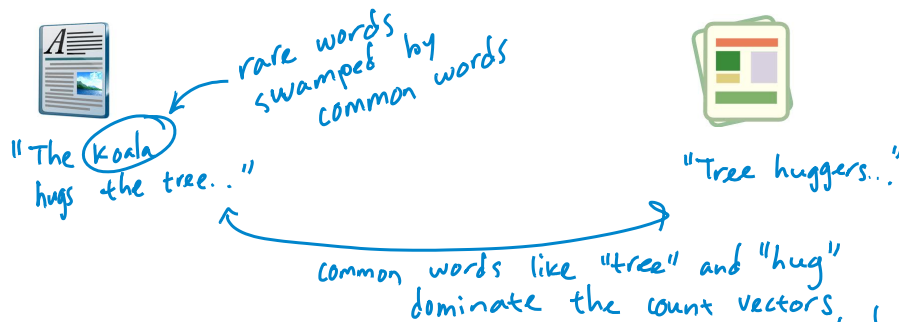 rare words
swamped by
common words
"The Koala
hugs the tree.."
"Tree huggers..."
common words like "tree" and "hug"
dominate the count vectors